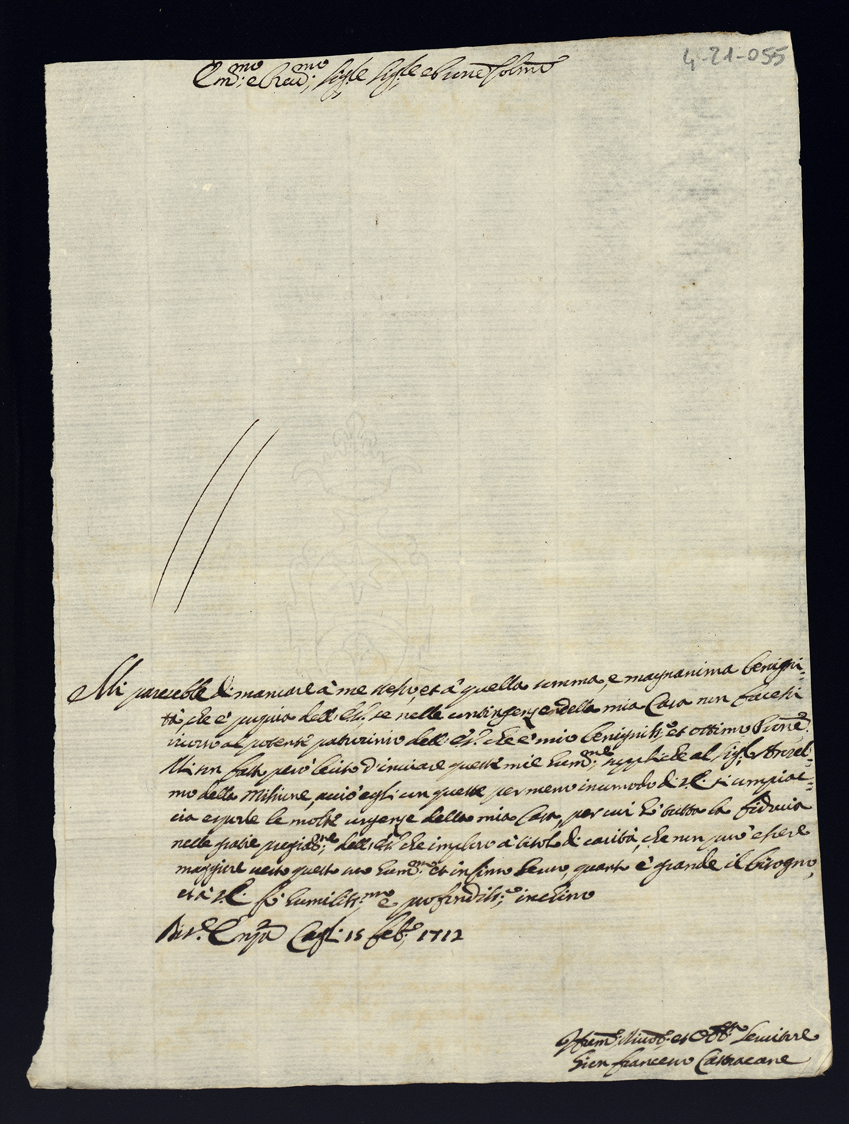 4-21-055
Em.mo e Rev.mo Sig.re Sig.re e Prone Colmo
Mi parerebbe di mancare à me stesso, et à quella somma, e magnanima benigni-
tà, che è propria dell'E.V. se nelle contingenze della mia Casa non facessi
ricorso al potente patrocinio dell'E.V. che è mio benigniss.o et ottimo Prone.
Mi son fatto però lecito d'inviare queste mie hum.me suppliche al Sig.r Ansel-
mo della Missione, acciò egli con queste per meno incomodo di V.E. si compiac-
cia esporle le molte urgenze della mia Casa, per cui hò tutta la fiducia
nelle grazie dell'E.V. che imploro à titolo di carità, che non può essere
maggiore verso questo suo hum.mo et infimo servo, quanto è grande il bisogno,
et à V.E. fò humiliss.mo e profondiss.o inchino
Cagli 15 Feb.o 1712
Hum.o Divot.o et Obb.o Servitore
Gion Francesco Castracane